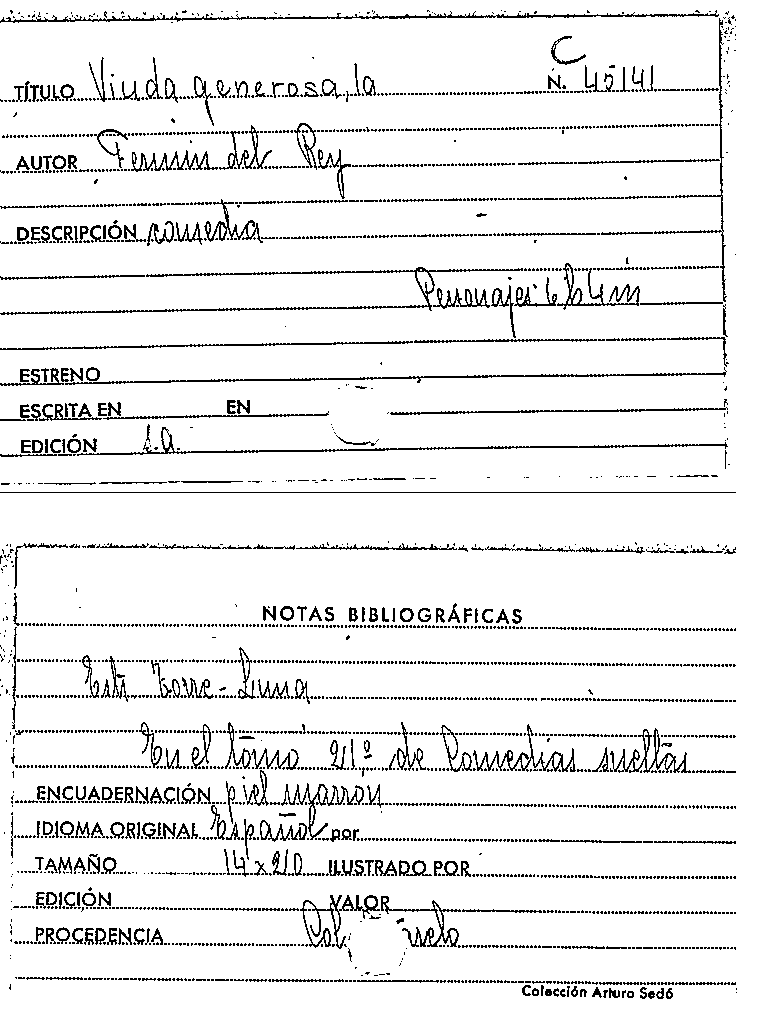 C
TÍTULO Viuda generosa, la N. 45141
AUTOR Fermin del Rey
DESCRIPCIÓN comedia
Personajes 6 h 4 m
ESTRENO
ESCRITA EN EN
EDICIÓN s.a.
NOTAS BIBLIOGRÁFICAS
Torre-Luna
En el tomo 21º de Comedias sueltas
ENCUADERNACIÓN piel marrón
IDIOMA ORIGINAL Español por
TAMAÑO 14 x 20 ILUSTRADO POR
EDICIÓN VALOR
PROCEDENCIA
Colección Arturo Sedó